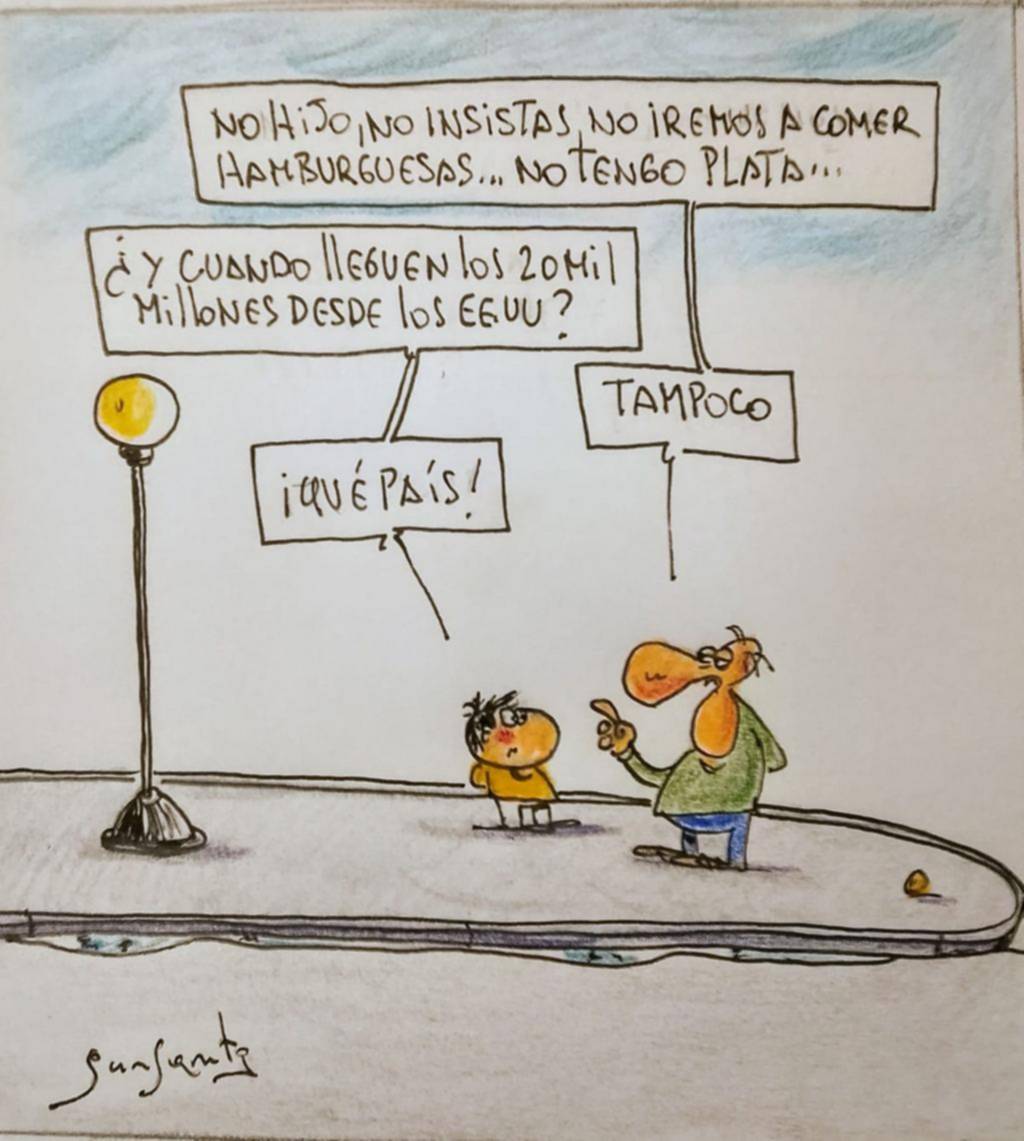 NO HIJO, NO INSISTAS, NO IREMOS A COMER
HAMBURGUESAS... NO TENGO PLATA...
¿Y CUANDO llEGUEN los 20 Mil
MillONES DESDE los EEUU?
TAMPOCO
¡QUÉ PAÍS!